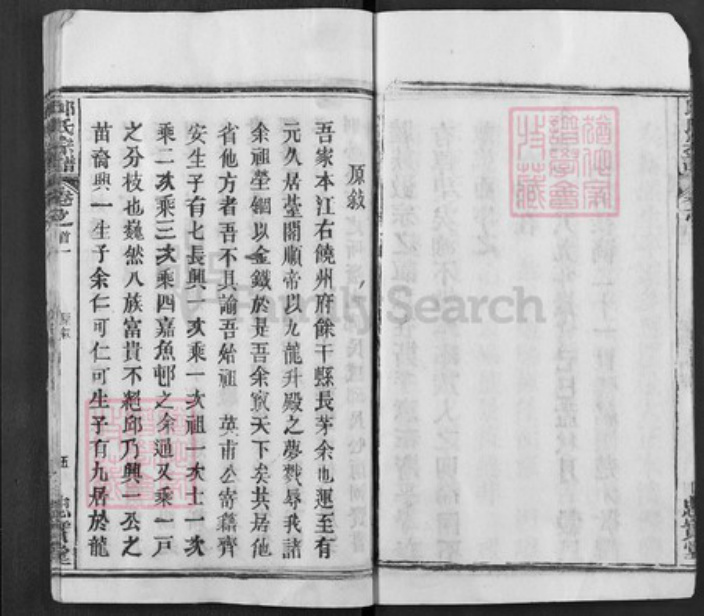 原敍
吾家本江右饒州府餘干縣長茅余也運至有
元久居臺閣順帝以九龍升殿之夢戮辱我諸
余祖塋錮以金鐵於是吾余竄天下矣其居他
省他方者吾不具論吾始祖 英甫公寄籍齊
安生子有七長興一次乘一次祖一次士一次
乘二次乘三次乘四嘉魚邨之余通又乘一戸
之分枝也巍然八族富貴不絕邱乃興一公之
苗裔興一生子余仁可仁可生子有九居於龍
邱氏宗譜
卷之首一
原敍
五
忠實堂
FamilySearch
譜學會
藏